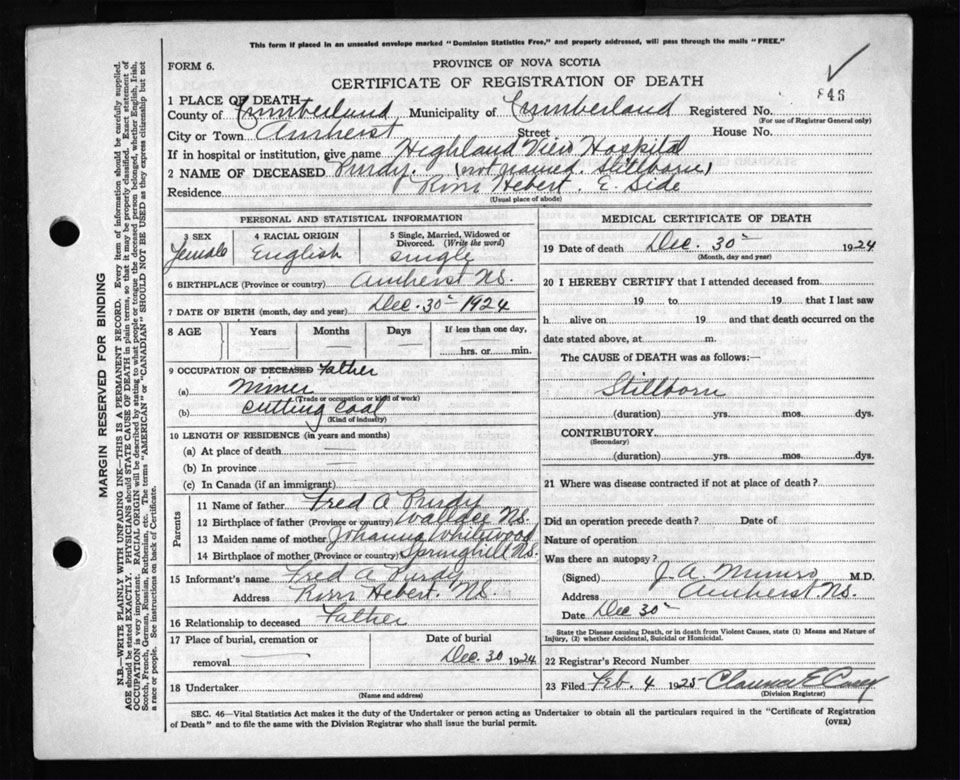 This form if placed in an unsealed envelope marked "Dominion Statistics Free," and properly addressed, will pass through the mails "FREE."
FORM 6.
PROVINCE OF NOVA SCOTIA
CERTIFICATE OF REGISTRATION OF DEATH
43
1 PLACE OF DEATH
County of Cumberland Municipality of Cumberland Registered No.
(For use of Registrar General only)
City or Town Amherst Street House No.
If in hospital or institution, give name Highland View Hospital
2 NAME OF DECEASED Purdy. (not named. Stillborn)
Residence River Hebert. E. Side
(Usual place of abode)
PERSONAL AND STATISTICAL INFORMATION
3 SEX 4 RACIAL ORIGIN 5 Single, Married, Widowed or Divorced. (Write the word)
Female English single
6 BIRTHPLACE (Province or country) Amherst N.S.
7 DATE OF BIRTH (month, day and year) Dec. 30 1924
8 AGE Years Months Days If less than one day,
hrs. or min.
9 OCCUPATION OF DECEASED Father
(a) Miner
(Trade or occupation or kind of work)
(b) Cutting Coal
(Kind of industry)
10 LENGTH OF RESIDENCE (in years and months)
(a) At place of death
(b) In province
(c) In Canada (if an immigrant)
Parents
11 Name of father Fred A Purdy
12 Birthplace of father (Province or country) Wallace N.S.
13 Maiden name of mother Johanna Whitwood
14 Birthplace of mother (Province or country) Springhill N.S.
15 Informant's name Fred A Purdy
Address River Hebert. N.S.
16 Relationship to deceased Father
17 Place of burial, cremation or removal Date of burial
Dec. 30 1924
18 Undertaker
(Name and address)
MEDICAL CERTIFICATE OF DEATH
19 Date of death Dec. 30 1924
(Month, day and year)
20 I HEREBY CERTIFY that I attended deceased from
19 to 19 that I last saw
h alive on 19 and that death occurred on the
date stated above, at m.
The CAUSE of DEATH was as follows:—
Stillborn
(duration) yrs. mos. dys.
CONTRIBUTORY
(Secondary)
(duration) yrs. mos. dys.
21 Where was disease contracted if not at place of death?
Did an operation precede death? Date of
Nature of operation
Was there an autopsy?
(Signed) J. A. Munro M.D.
Address Amherst N.S.
Date Dec 30
State the Disease causing Death, or in death from Violent Causes, state (1) Means and Nature of
Injury, (2) whether Accidental, Suicidal or Homicidal.
22 Registrar's Record Number
23 Filed Feb. 4 1925 Clarence E Casey
(Division Registrar)
SEC. 46—Vital Statistics Act makes it the duty of the Undertaker or person acting as Undertaker to obtain all the particulars required in the "Certificate of Registration
of Death" and to file the same with the Division Registrar who shall issue the burial permit. (OVER)
MARGIN RESERVED FOR BINDING
N.B.—WRITE PLAINLY WITH UNFADING INK—THIS IS A PERMANENT RECORD. Every item of information should be carefully supplied.
AGE should be stated EXACTLY. PHYSICIANS should STATE CAUSE OF DEATH in plain terms, so that it may be properly classified. Exact statement of
OCCUPATION is very important. RACIAL ORIGIN will be described by stating to what people or tongue the deceased person belonged, whether English, Irish,
Scotch, French, German, Russian, Ruthenian, etc. The terms "AMERICAN" or "CANADIAN" SHOULD NOT BE USED as they express citizenship but not
a race or people. See instructions on back of Certificate.